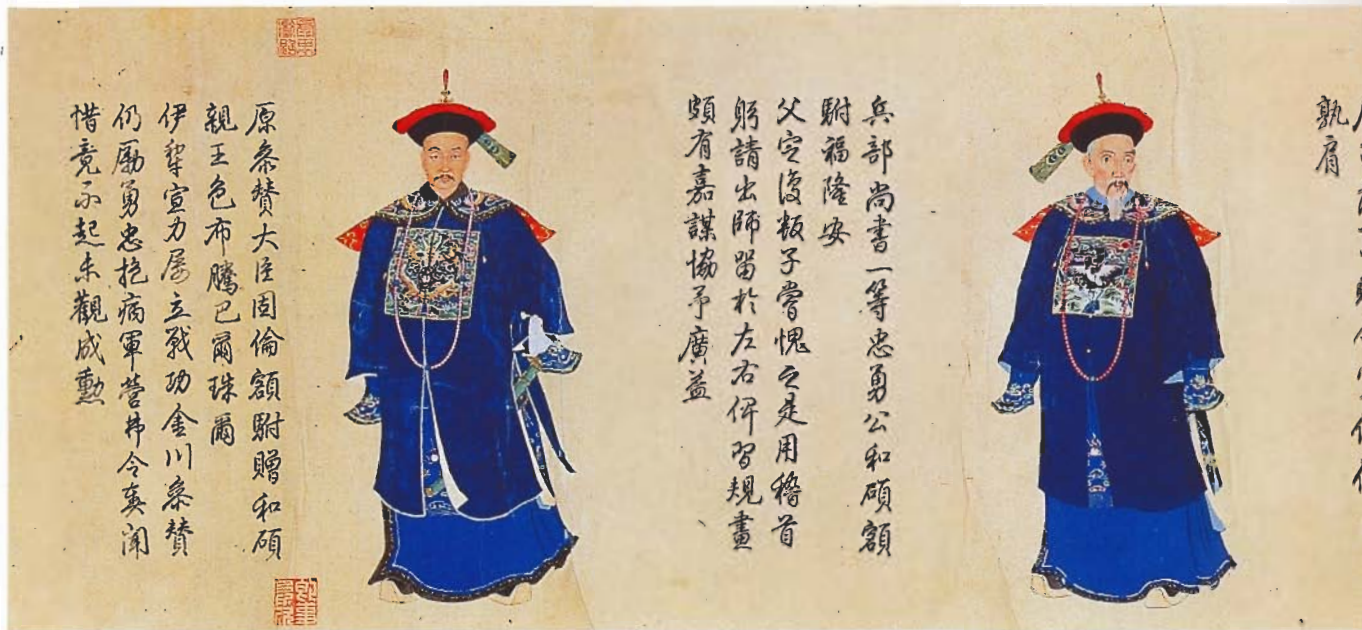 孰肩
兵部尚書一等忠勇公和碩額
駙福隆安
父定復叛子嘗愧之是用稽首
躬請出師留於左右俾習規畫
頗有嘉謀協予廣益
原叅贊大臣固倫額駙贈和碩
親王色布騰巴爾珠爾
伊犂宣力屢立戰功金川叅贊
仍勵勇忠抱病軍營弗令奏聞
惜竟不起未觀成勲